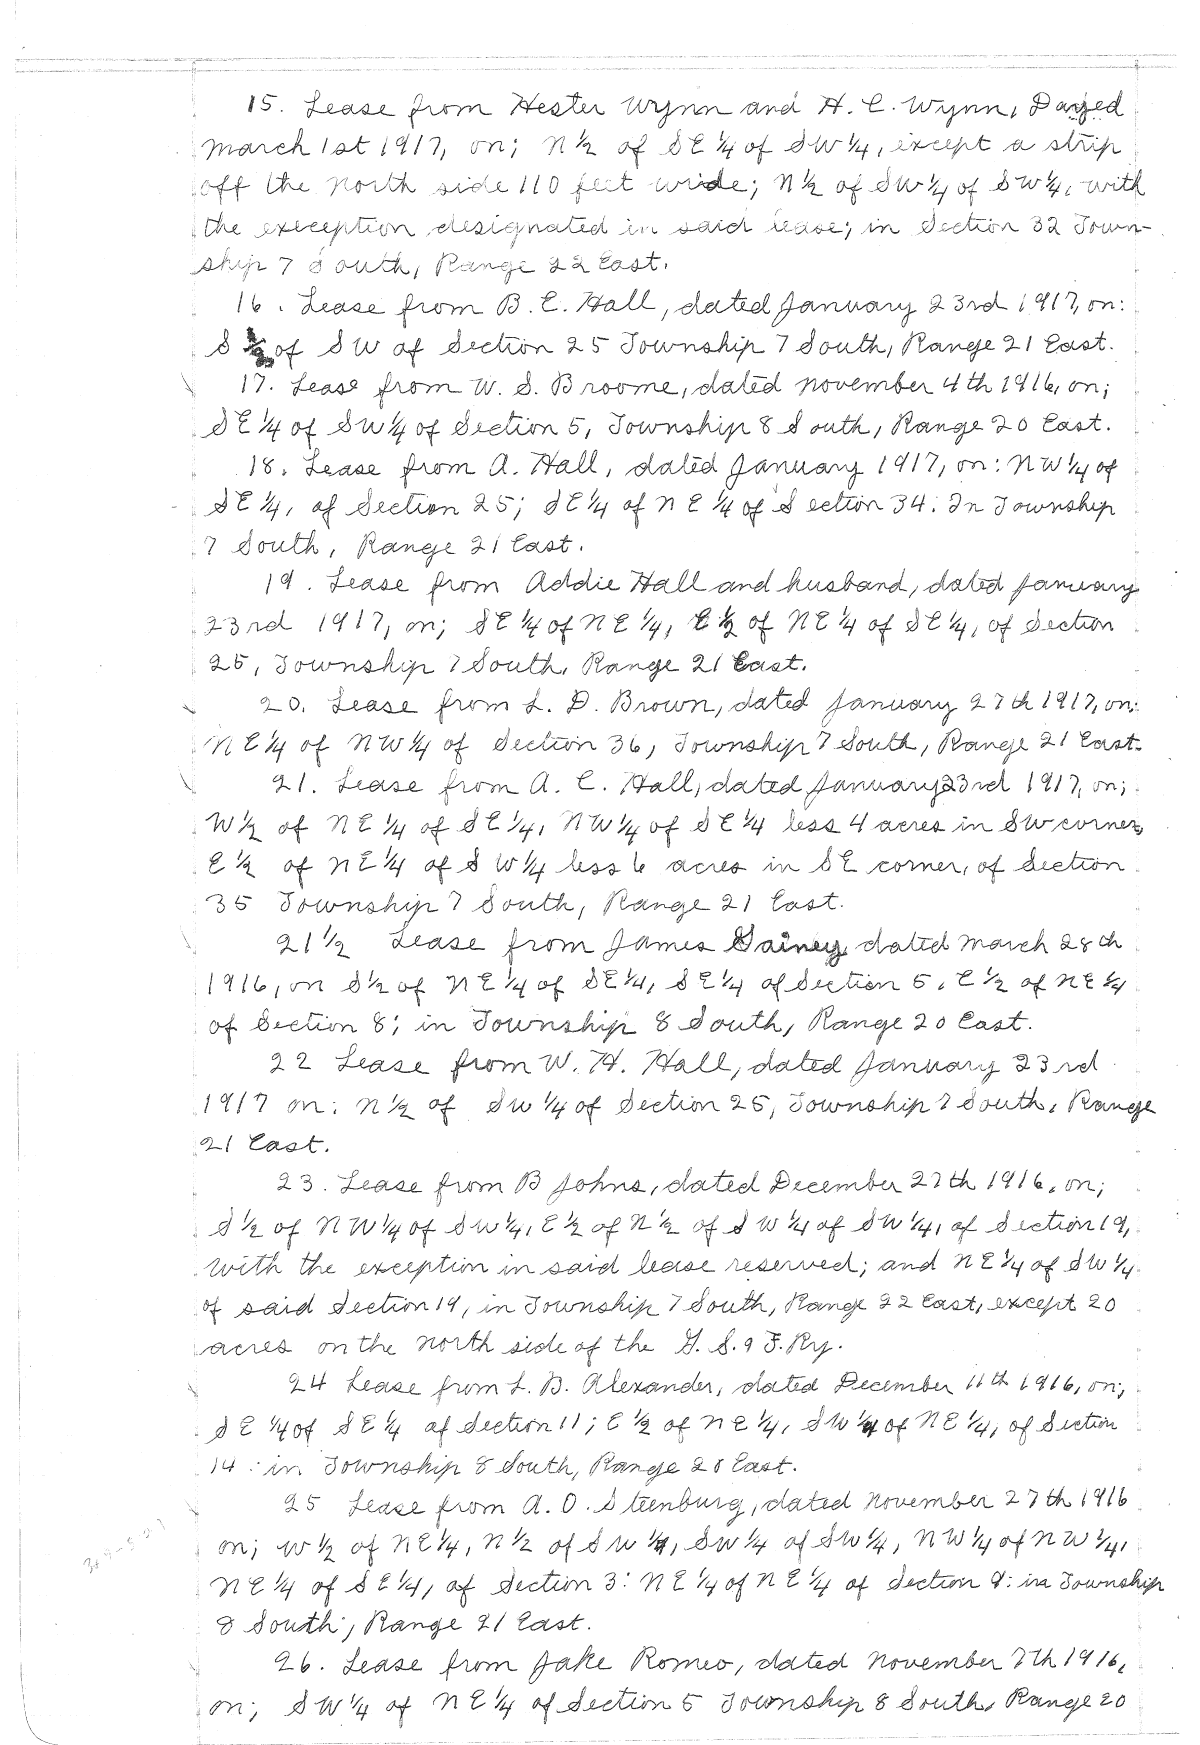 15. Lease from Hester Wynn and H. C. Wynn, Dated
March 1st 1917, on; N½ of SE¼ of SW¼, except a strip
off the north side 110 feet wide; N½ of SW¼ of SW¼, with
the exception designated in said lease; in Section 32 Town-
ship 7 South, Range 22 East.
16. Lease from B. E. Hall, dated January 23rd 1917, on:
S ½ of SW of Section 25 Township 7 South, Range 21 East.
17. Lease from W. S. Broome, dated November 4th 1916, on;
SE¼ of SW¼ of Section 5, Township 8 South, Range 20 East.
18. Lease from A. Hall, dated January 1917, on: NW¼ of
SE¼, of Section 25; SE¼ of NE¼ of Section 34. In Township
7 South, Range 21 East.
19. Lease from Addie Hall and husband, dated January
23rd 1917, on; SE¼ of NE¼, E½ of NE¼ of SE¼, of Section
25, Township 7 South, Range 21 East.
20. Lease from L. D. Brown, dated January 27th 1917, on:
NE¼ of NW¼ of Section 36, Township 7 South, Range 21 East.
21. Lease from A. C. Hall, dated January 23rd 1917, on;
W½ of NE¼ of SE¼, NW¼ of SE¼ less 4 acres in SW corner,
E½ of NE¼ of SW¼ less 6 acres in SE corner, of Section
35 Township 7 South, Range 21 East.
21½ Lease from James Gainey, dated March 28th
1916, on S½ of NE¼ of SE¼, SE¼ of Section 5, E½ of NE¼
of Section 8; in Township 8 South, Range 20 East.
22 Lease from W. H. Hall, dated January 23rd
1917 on: N½ of SW¼ of Section 25, Township 7 South, Range
21 East.
23. Lease from B Johns, dated December 27th 1916, on;
S½ of NW¼ of SW¼, E½ of N½ of SW¼ of SW¼, of Section 19,
with the exception in said lease reserved; and NE¼ of SW¼
of said Section 19, in Township 7 South, Range 22 East, except 20
acres on the north side of the G. S. & F. Ry.
24 Lease from L. B. Alexander, dated December 11th 1916, on;
SE¼ of SE¼ of Section 11; E½ of NE¼, SW¼ of NE¼, of Section
14: in Township 8 South, Range 20 East.
25 Lease from A. O. Steenburg, dated November 27th 1916
on; W½ of NE¼, N½ of SW¼, SW¼ of SW¼, NW¼ of NW¼,
NE¼ of SE¼, of Section 3: NE¼ of NE¼ of Section 9: in Township
8 South, Range 21 East.
26. Lease from Jake Romeo, dated November 7th 1916,
on; SW¼ of NE¼ of Section 5 Township 8 South, Range 20